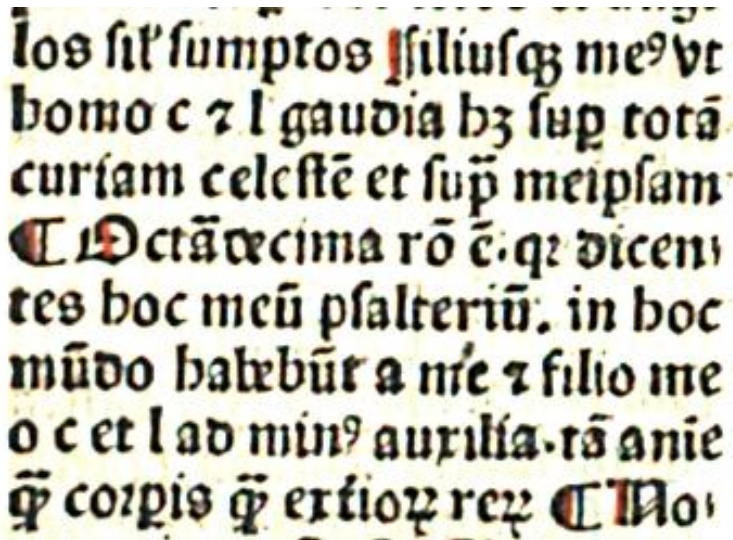 los siƚ sumptos Filiusqꝫ meꝰ vt
homo c ⁊ l gaudia hꝫ suꝑ totā
curiam celestē et sup̄ meipsam
¶ Octādecima rō ē. qꝛ dicen⸗
tes hoc meū psalteriū. in hoc
mūdo habebūt a me ⁊ filio me
o c et l ad minꝰ auxilia. tā anīe
qꝫ̄ corꝑis qꝫ̄ extioꝝ reꝝ ¶ No⸗